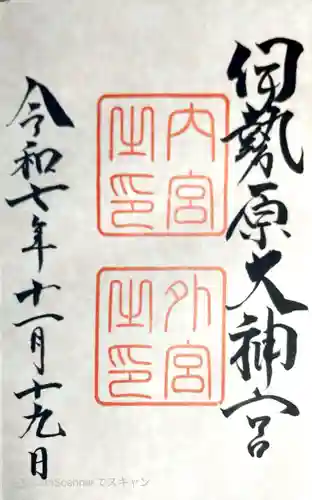 伊勢原大神宮
内宮
之印
外宮
之印
令和七年十一月十九日
Scanner でスキャン